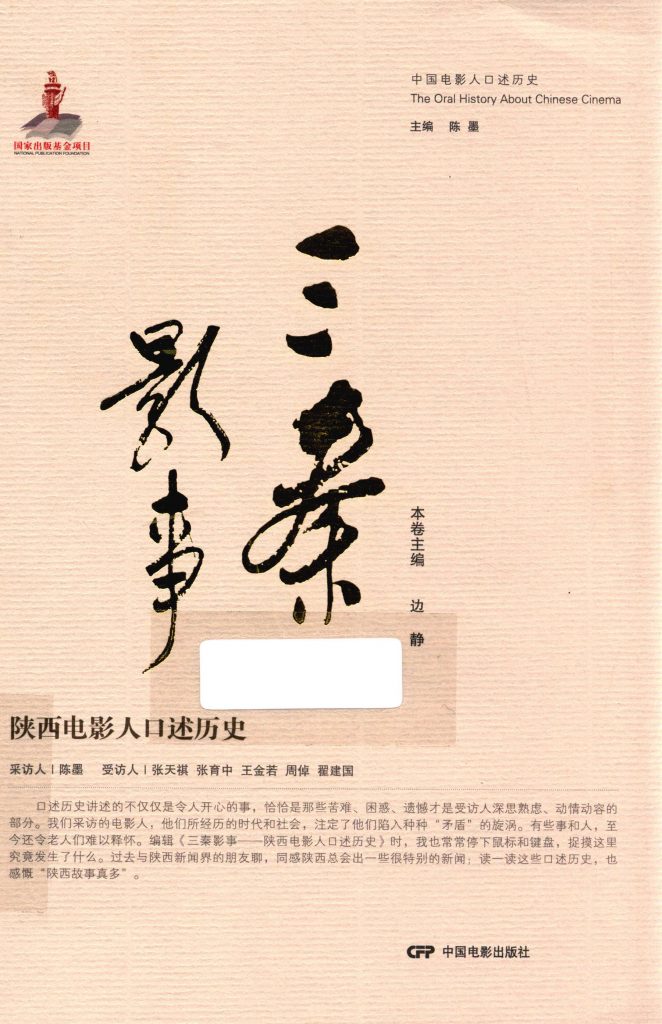 中国电影人口述历史
The Oral History About Chinese Cinema
主编 陈墨
国家出版基金项目
NATIONAL PUBLICATION FOUNDATION
三秦
影事
本卷主编 边静
陕西电影人口述历史
采访人|陈墨 受访人|张天祺 张育中 王金若 周倬 翟建国
口述历史讲述的不仅仅是令人开心的事，恰恰是那些苦难、困惑、遗憾才是受访人深思熟虑、动情动容的
部分。我们采访的电影人，他们所经历的时代和社会，注定了他们陷入种种“矛盾”的旋涡。有些事和人，至
今还令老人们难以释怀。编辑《三秦影事——陕西电影人口述历史》时，我也常常停下鼠标和键盘，捉摸这里
究竟发生了什么。过去与陕西新闻界的朋友聊，同感陕西总会出一些很特别的新闻；读一读这些口述历史，也
感慨“陕西故事真多”。
CFP 中国电影出版社